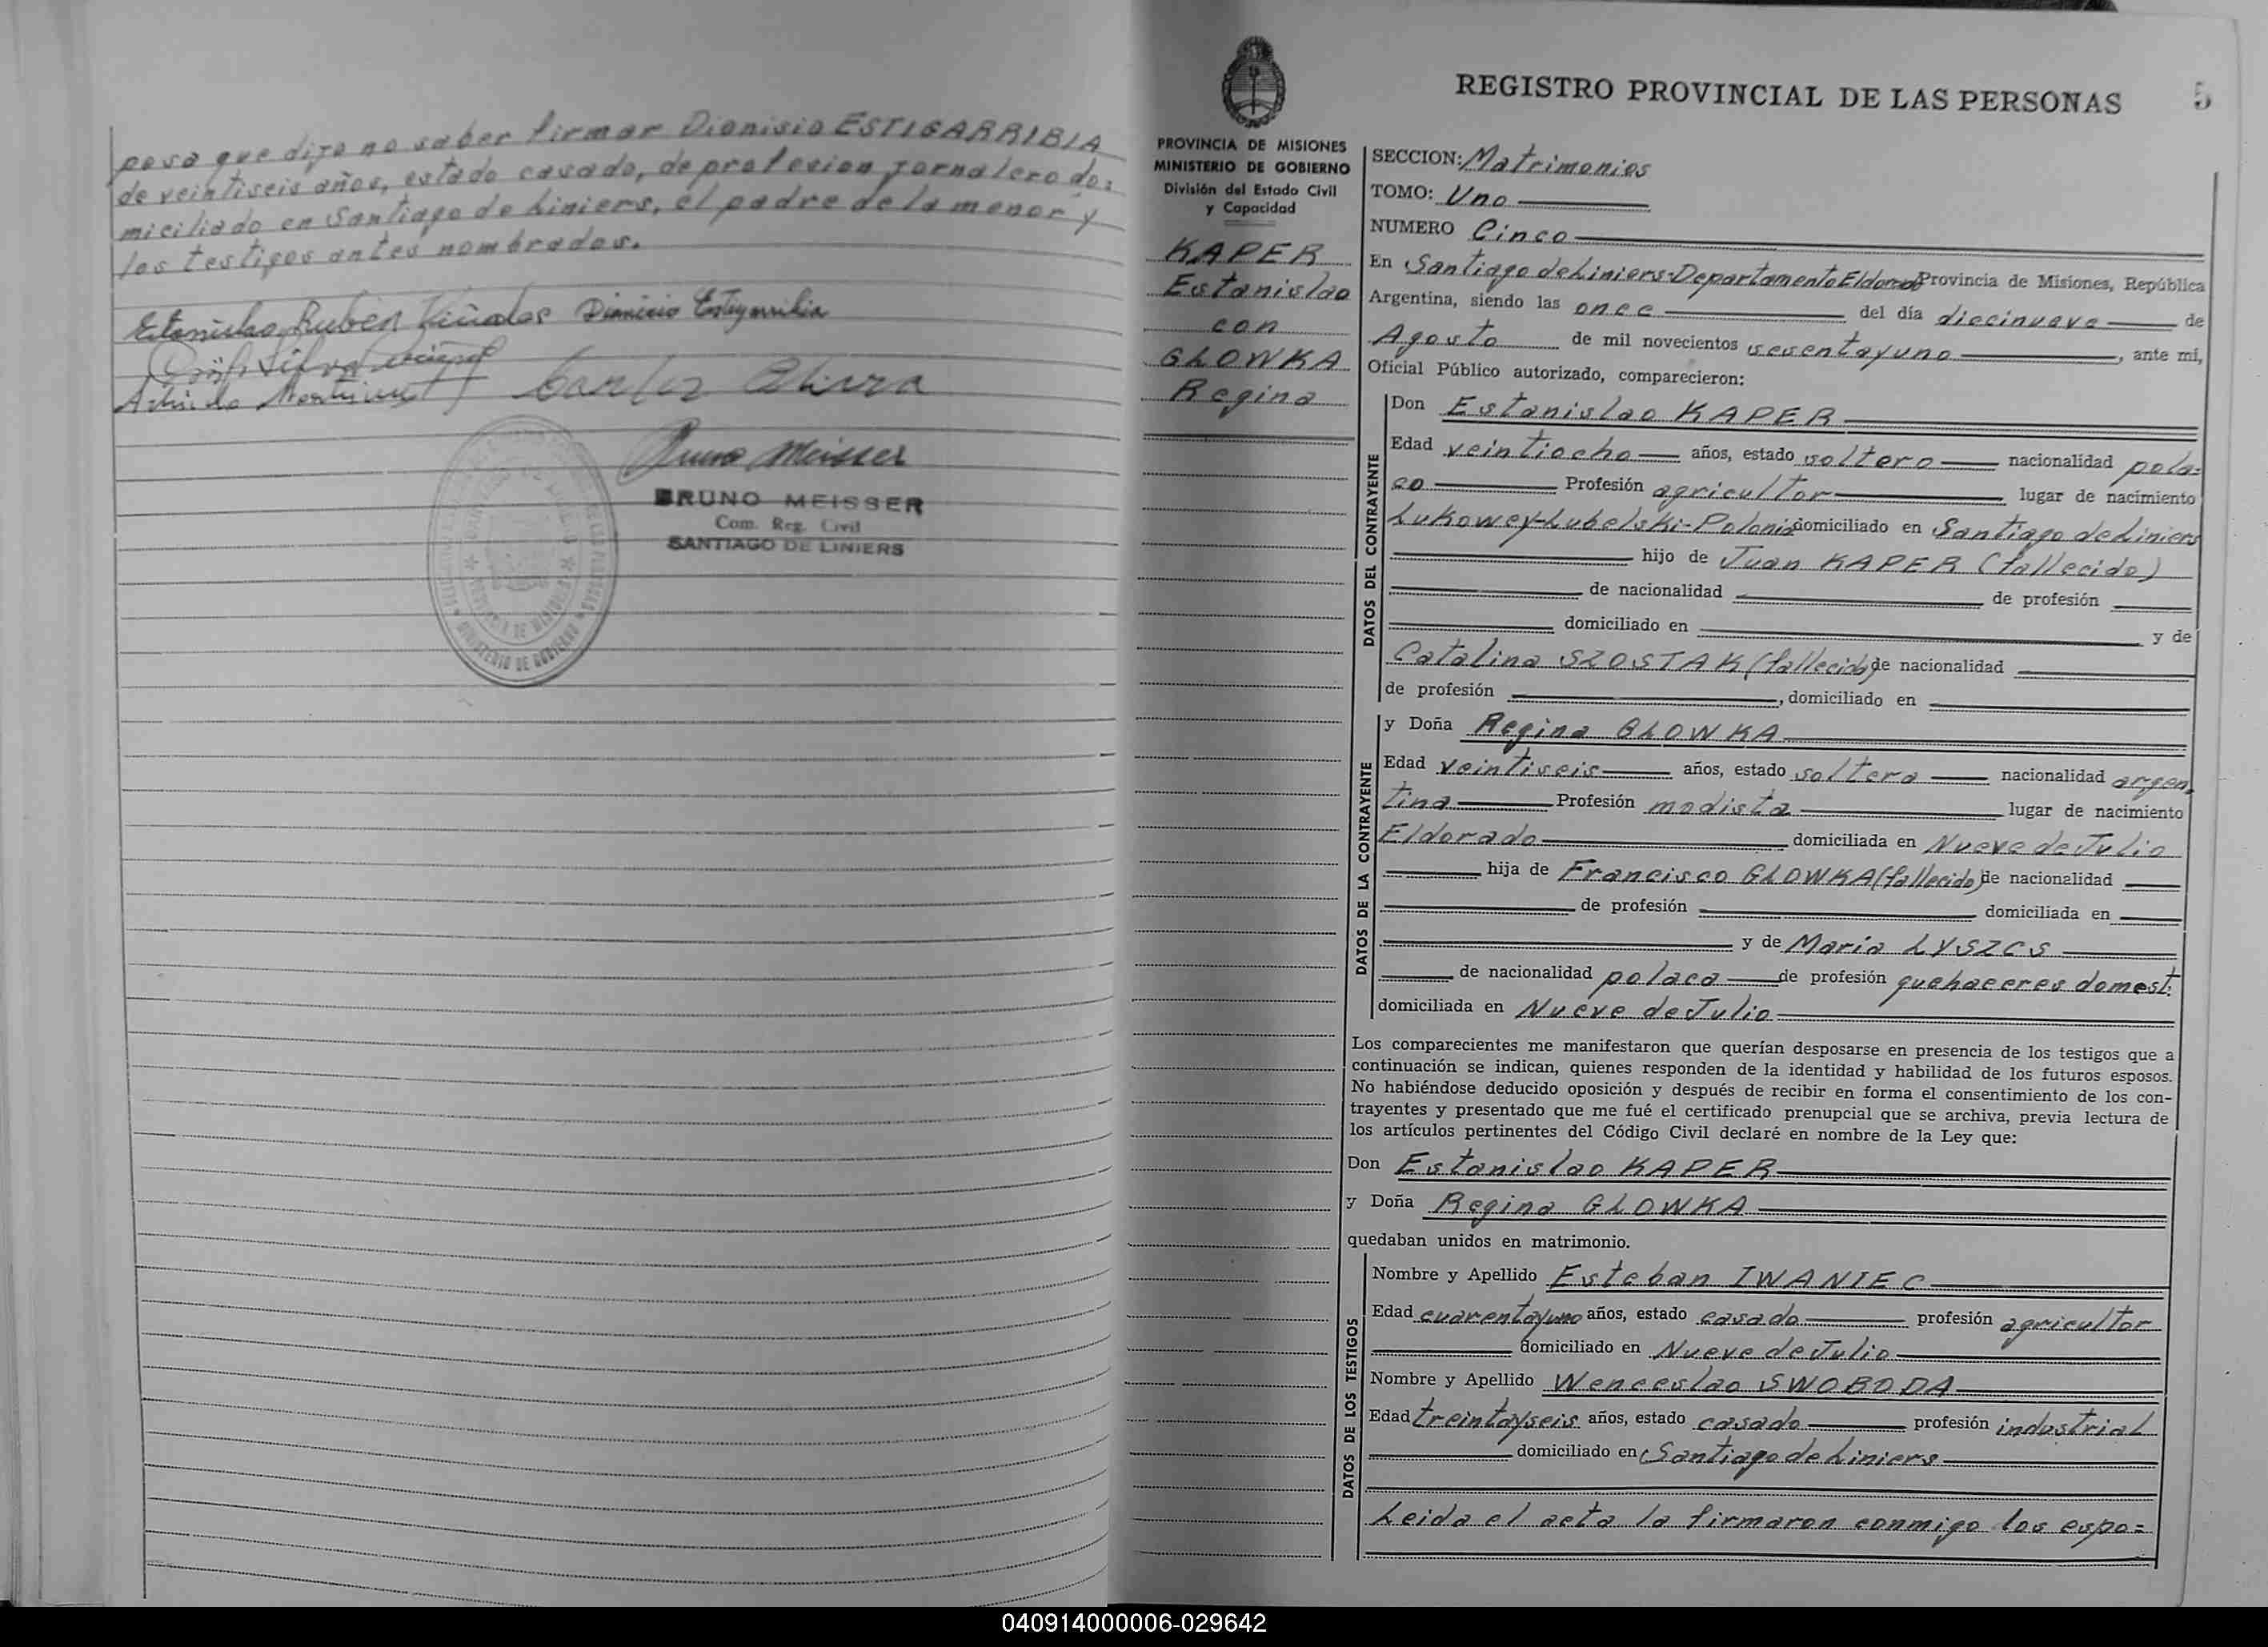 posa que dijo no saber firmar Dionisio ESTIGARRIBIA
de veintiseis años, estado casado, de profesion jornalero do=
miciliado en Santiago de Liniers, el padre de la menor y
los testigos antes nombrados.
Estanislao Ruben Dionicio Estigarribia
Carlos
Bruno Meisser
BRUNO MEISSER
Com. Reg. Civil
SANTIAGO DE LINIERS
MINISTERIO DE GOBIERNO
PROVINCIA DE MISIONES
MINISTERIO DE GOBIERNO
División del Estado Civil
y Capacidad
KAPER
Estanislao
con
GLOWKA
Regina
REGISTRO PROVINCIAL DE LAS PERSONAS 5
SECCION: Matrimonios
TOMO: Uno
NUMERO Cinco
En Santiago de Liniers-Departamento Eldorado Provincia de Misiones, República
Argentina, siendo las once del día diecinueve de
Agosto de mil novecientos sesentayuno, ante mí,
Oficial Público autorizado, comparecieron:
DATOS DEL CONTRAYENTE
Don Estanislao KAPER
Edad veintiocho años, estado soltero nacionalidad pola=
co Profesión agricultor lugar de nacimiento
Lukowey-Lubelski-Polonia domiciliado en Santiago de Liniers
hijo de Juan KAPER (fallecido)
de nacionalidad de profesión
domiciliado en y de
Catalina SZOSTAK (fallecida) de nacionalidad
de profesión , domiciliado en
DATOS DE LA CONTRAYENTE
y Doña Regina GLOWKA
Edad veintiseis años, estado soltera nacionalidad argen=
tina Profesión modista lugar de nacimiento
Eldorado domiciliada en Nueve de Julio
hija de Francisco GLOWKA (fallecido) de nacionalidad
de profesión domiciliada en
y de Maria LYSZCS
de nacionalidad polaca de profesión quehaceres domest.
domiciliada en Nueve de Julio
Los comparecientes me manifestaron que querían desposarse en presencia de los testigos que a
continuación se indican, quienes responden de la identidad y habilidad de los futuros esposos.
No habiéndose deducido oposición y después de recibir en forma el consentimiento de los con-
trayentes y presentado que me fué el certificado prenupcial que se archiva, previa lectura de
los artículos pertinentes del Código Civil declaré en nombre de la Ley que:
Don Estanislao KAPER
y Doña Regina GLOWKA
quedaban unidos en matrimonio.
DATOS DE LOS TESTIGOS
Nombre y Apellido Esteban IWANIEC
Edad cuarentayuno años, estado casado profesión agricultor
domiciliado en Nueve de Julio
Nombre y Apellido Wenceslao SWOBODA
Edad treintayseis años, estado casado profesión industrial
domiciliado en Santiago de Liniers
Leida el acta la firmaron conmigo los espo=
040914000006-029642